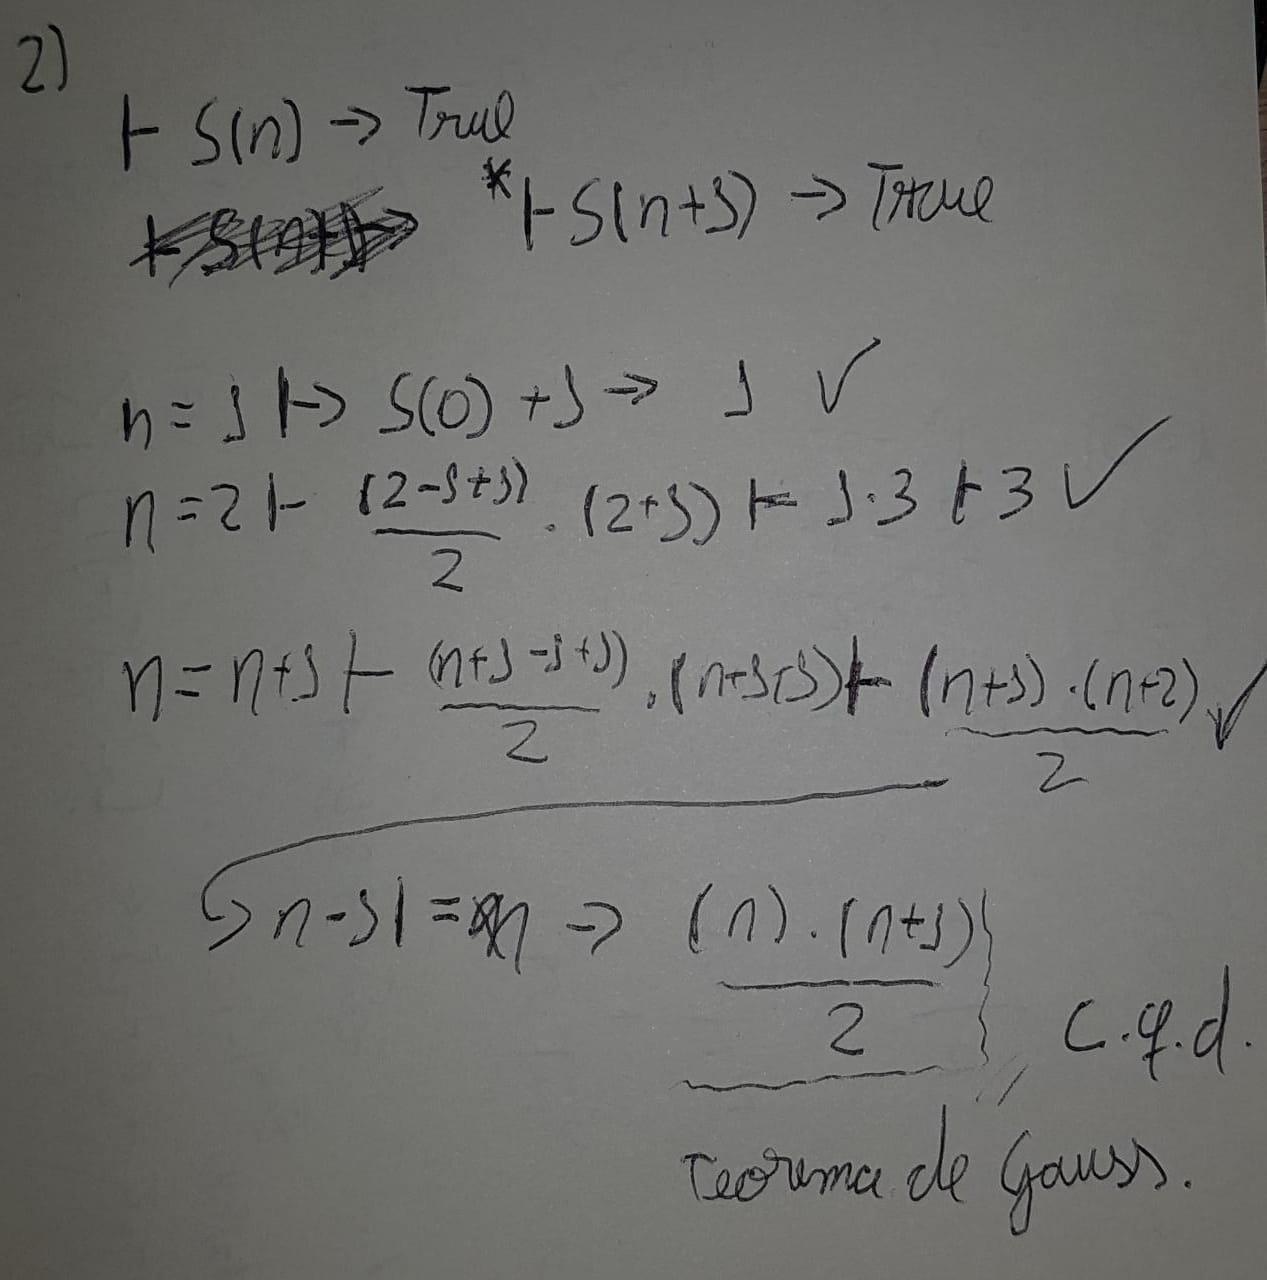 2)
⊢ S(n) → True
* ⊢ S(n+1) → True
n = 1 ⊢> S(0) + 1 → 1 ✓
n = 2 ⊢ (2-1+1)/2 . (2+1) ⊢ 1.3 ⊢ 3 ✓
n = n+1 ⊢ (n+1-1+1)/2 . (n+1+1) ⊢ (n+1).(n+2)/2 ✓
↳ n-1 | = n → (n).(n+1)/2
c.q.d.
Teorema de Gauss.